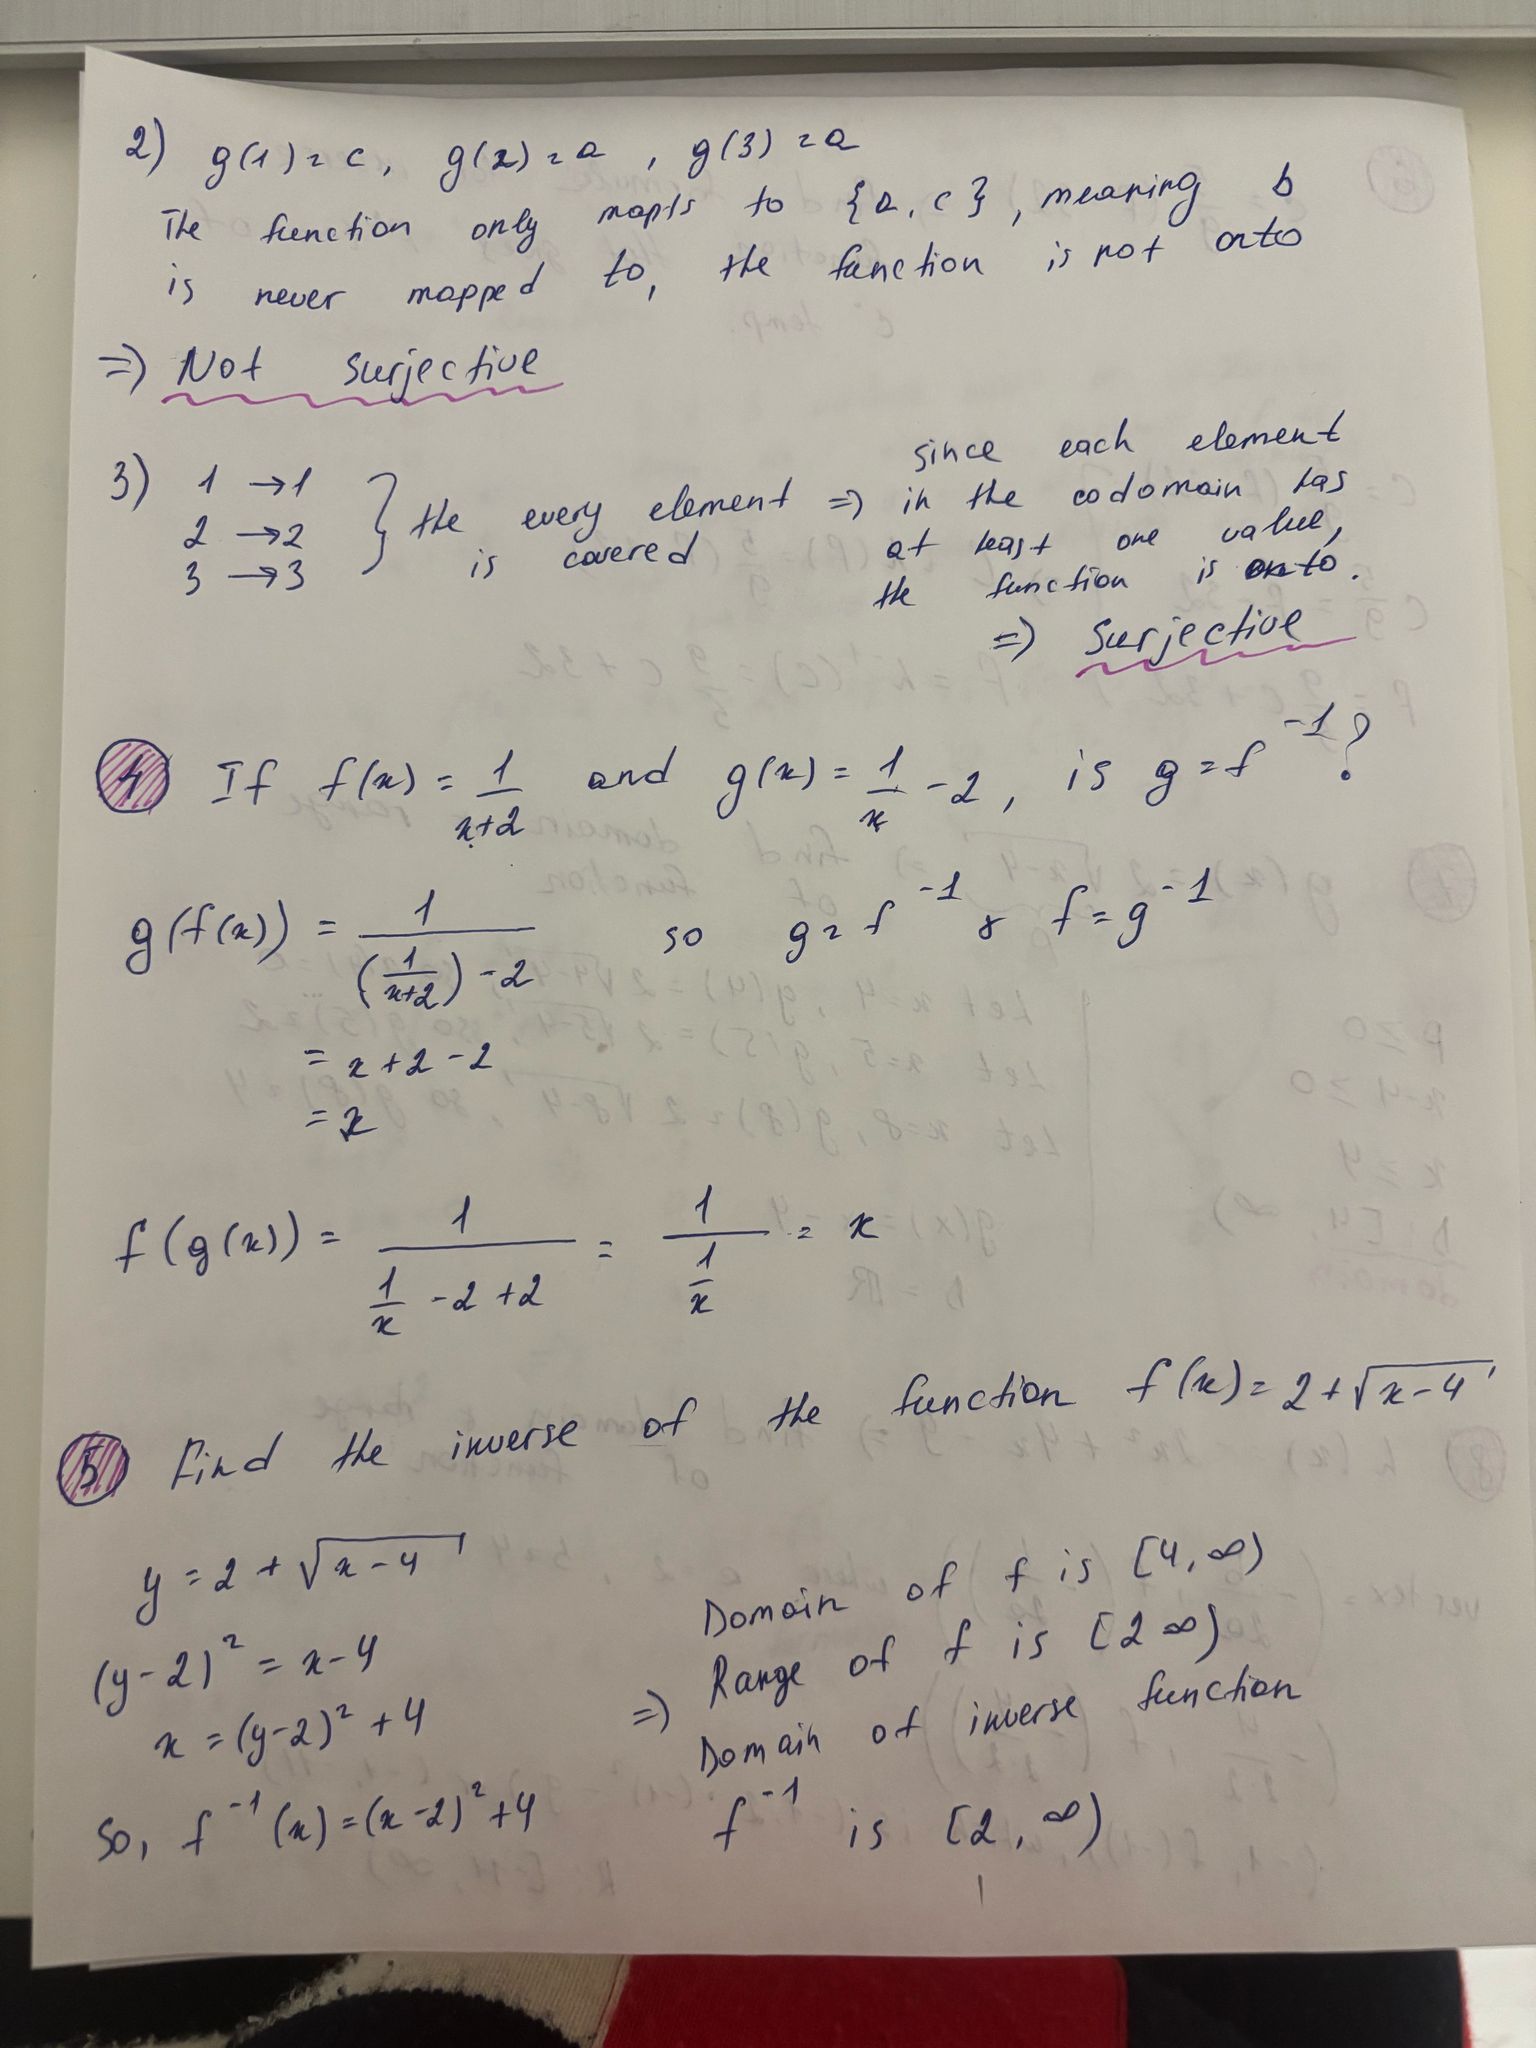 2) g(1) = c, g(2) = a, g(3) = a
The function only mapts to {a, c}, meaning b
is never mapped to, the function is not onto
=> Not surjective
3) 1 → 1
2 → 2
3 → 3
} the every element
is covered
=> since each element
in the codomain has
at least one value,
the function is onto.
=> Surjective
4 If f(x) = 1/(x+2) and g(x) = 1/x - 2, is g = f^-1?
g(f(x)) = 1/((1/(x+2)) - 2 so g = f^-1 & f = g^-1
= x + 2 - 2
= x
f(g(x)) = 1/(1/x - 2 + 2) = 1/(1/x) = x
5 Find the inverse of the function f(x) = 2 + √(x-4)
y = 2 + √(x-4)
(y-2)² = x-4
x = (y-2)² + 4
So, f^-1(x) = (x-2)² + 4
=> Domain of f is [4, ∞)
Range of f is [2 ∞)
Domain of inverse function
f^-1 is [2, ∞)